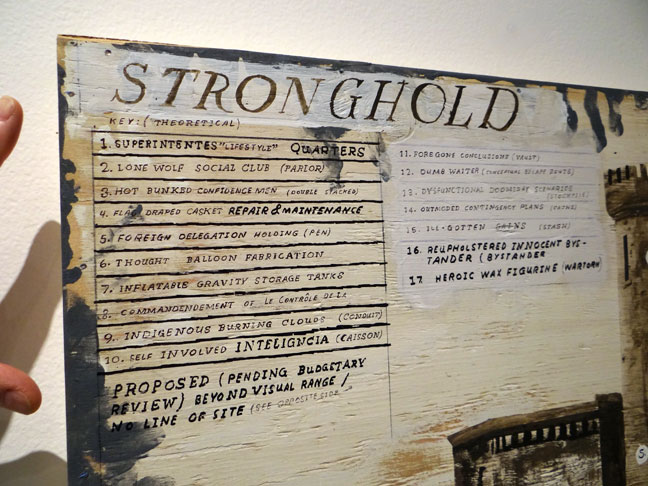 STRONGHOLD
KEY: (THEORETICAL)
1. SUPERINTENTES "LIFESTYLE" QUARTERS
2. LONE WOLF SOCIAL CLUB (PARLOR)
3. HOT BUNKED CONFIDENCE MEN (DOUBLE STACKED)
4. FLAG DRAPED CASKET REPAIR & MAINTENANCE
5. FOREIGN DELEGATION HOLDING (PEN)
6. THOUGHT BALLOON FABRICATION
7. INFLATABLE GRAVITY STORAGE TANKS
8. COMMANDENDEMENT OF LE CONTRÔLE DE LA
9. INDIGENOUS BURNING CLOUDS (CONDUIT)
10. SELF INVOLVED INTELIGNCIA (CAISSON)
PROPOSED (PENDING BUDGETARY
REVIEW) BEYOND VISUAL RANGE /
NO LINE OF SITE (SEE OPPOSITE SIDE
11. FOREGONE CONCLUSIONS (VAULT)
12. DUMB WAITER (CONCEPTUAL ESCAPE ROUTE)
13. DYSFUNCTIONAL DOOMSDAY SCENARIOS
14. OUTMODED CONTINGENCY PLANS
15. ILL-GOTTEN GAINS (STASH)
16. REUPHOLSTERED INNOCENT BYS-
TANDER (BYSTANDER
17. HEROIC WAX FIGURINE (WARTORN)
5